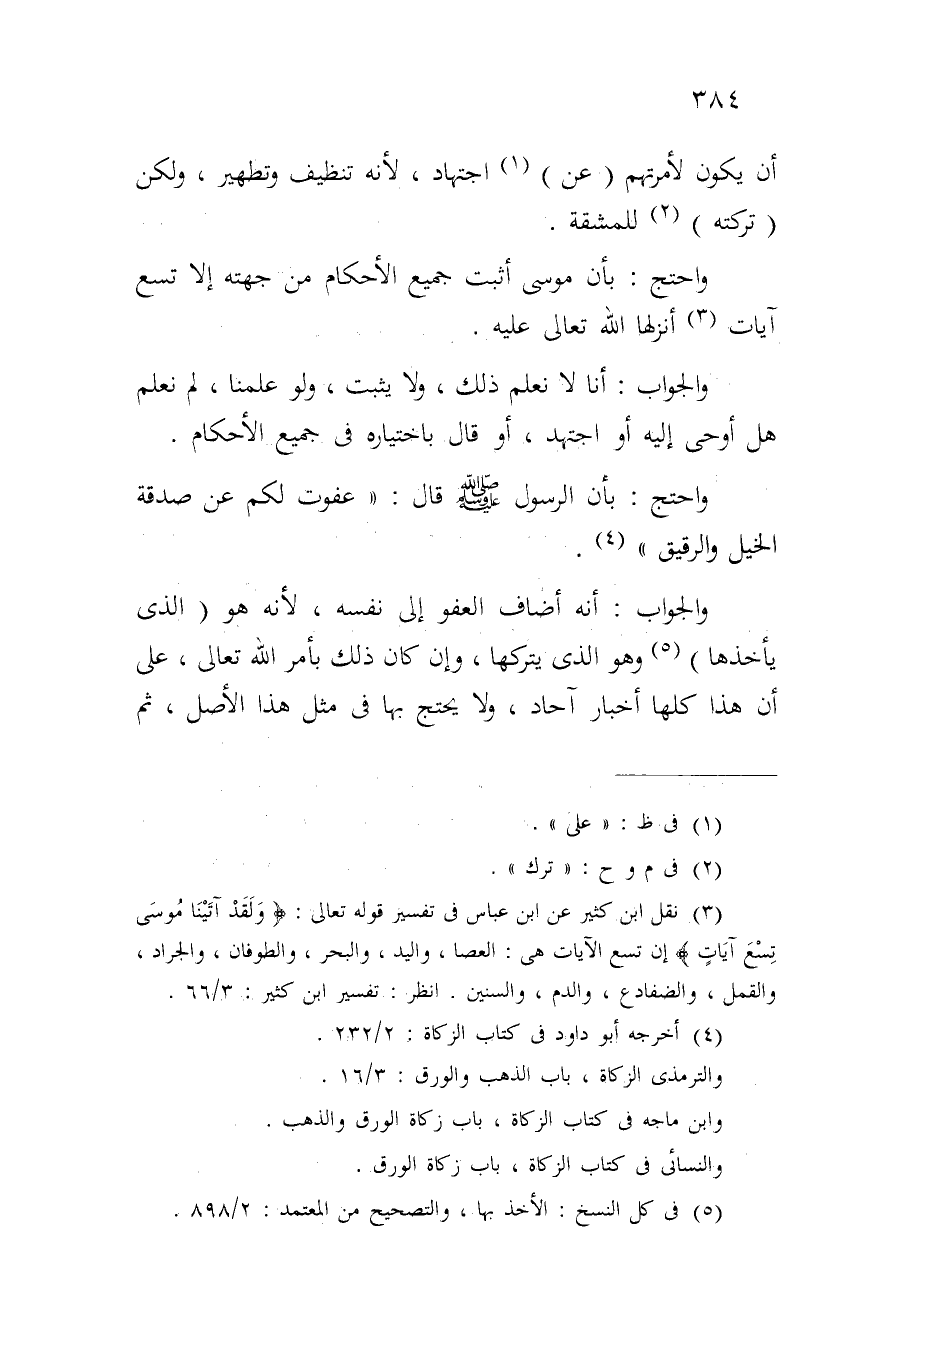 ٣٨٤
أن يكون لأمرتهم ( عن ) (١) اجتهاد ، لأنه تنظيف وتطهير ، ولكن
( تركته ) (٢) للمشقة .
واحتج : بأن موسى أثبت جميع الأحكام من جهته إلا تسع
آيات (٣) أنزلها الله تعالى عليه .
والجواب : أنا لا نعلم ذلك ، ولا يثبت ، ولو علمنا ، لم نعلم
هل أوحى إليه أو اجتهد ، أو قال باختياره فى جميع الأحكام .
واحتج : بأن الرسول ﷺ قال : « عفوت لكم عن صدقة
الخيل والرقيق » (٤) .
والجواب : أنه أضاف العفو إلى نفسه ، لأنه هو ( الذى
يأخذها ) (٥) وهو الذى يتركها ، وإن كان ذلك بأمر الله تعالى ، على
أن هذا كلها أخبار آحاد ، ولا يحتج بها فى مثل هذا الأصل ، ثم
(١) فى ظ : « على » .
(٢) فى م و ح : « ترك » .
(٣) نقل ابن كثير عن ابن عباس فى تفسير قوله تعالى : ﴿ وَلَقَدْ آتَيْنَا مُوسَى
تِسْعَ آيَاتٍ ﴾ إن تسع الآيات هى : العصا ، واليد ، والبحر ، والطوفان ، والجراد ،
والقمل ، والضفادع ، والدم ، والسنين . انظر : تفسير ابن كثير : ٦٦/٣ .
(٤) أخرجه أبو داود فى كتاب الزكاة : ٢٣٢/٢ .
والترمذى الزكاة ، باب الذهب والورق : ١٦/٣ .
وابن ماجه فى كتاب الزكاة ، باب زكاة الورق والذهب .
والنسائى فى كتاب الزكاة ، باب زكاة الورق .
(٥) فى كل النسخ : الأخذ بها ، والتصحيح من المعتمد : ٨٩٨/٢ .